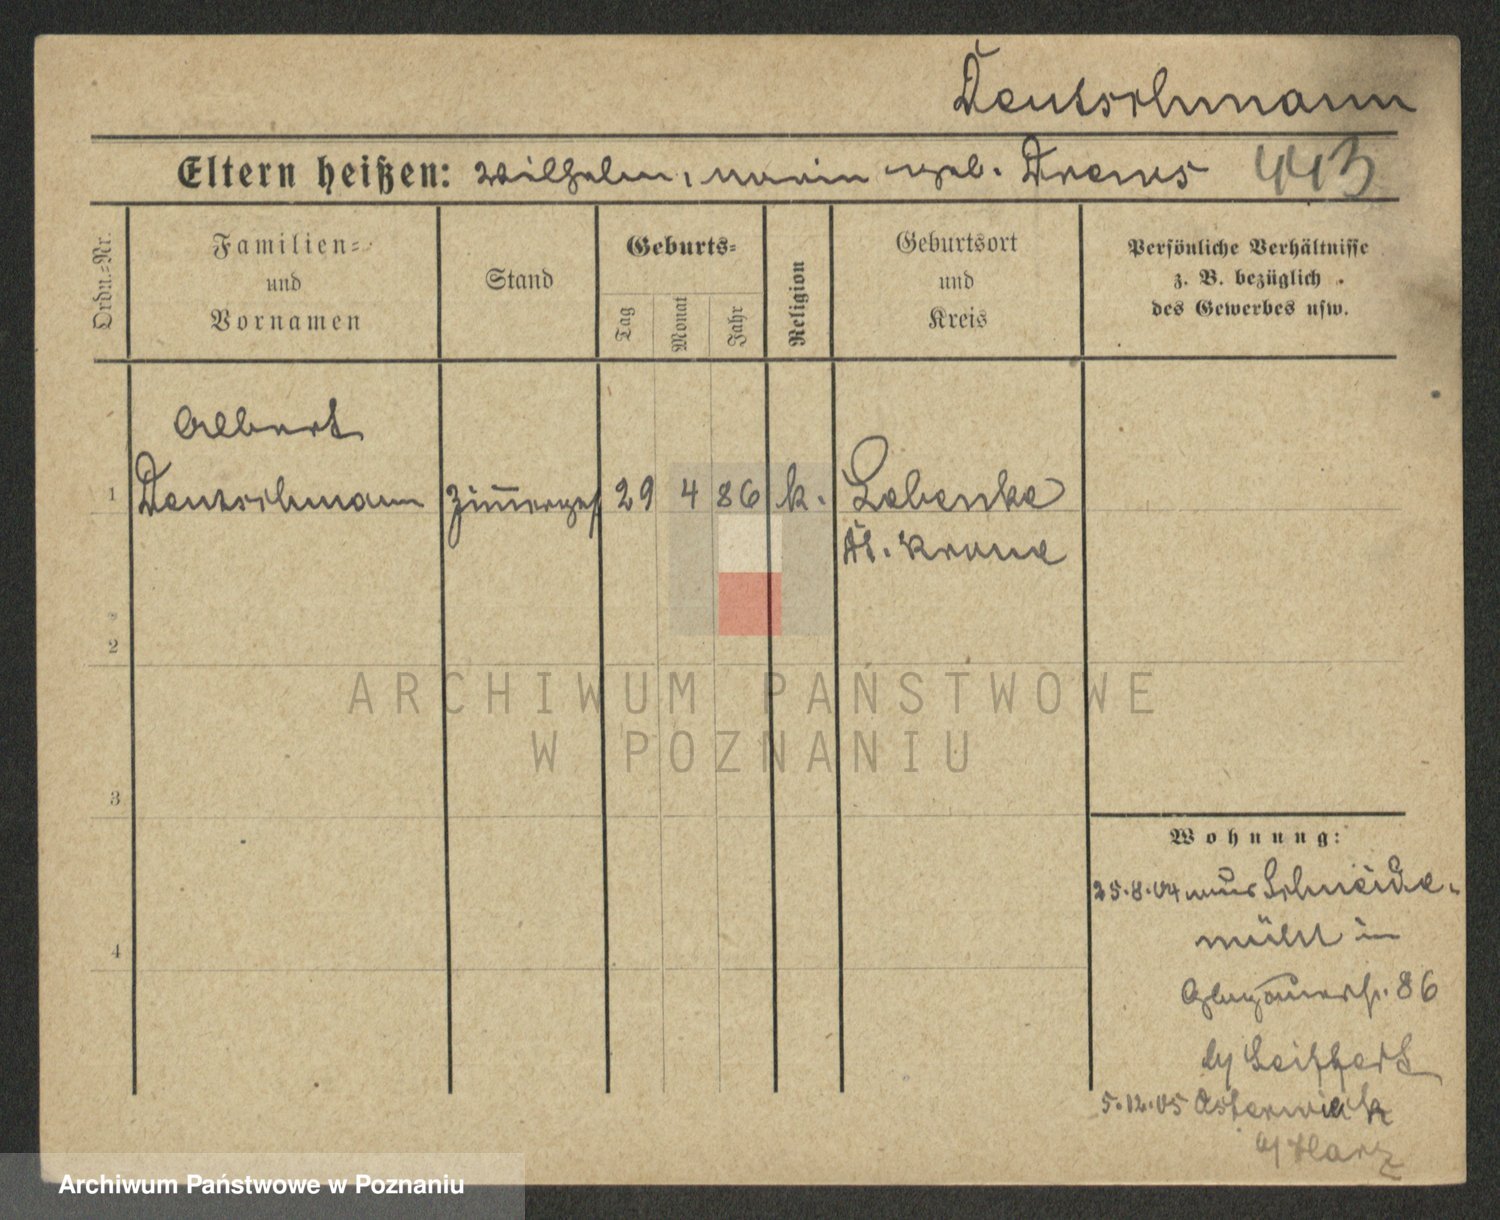 Deutschmann
Eltern heißen: Wilhelm, Marie geb. Drews 443
Ordn.=Nr.
Familien=
und
Vornamen
Stand
Geburts=
Tag
Monat
Jahr
Religion
Geburtsort
und
Kreis
Persönliche Verhältnisse
z. B. bezüglich
des Gewerbes usw.
Albert
1 Deutschmann Zim̅erges 29 4 86 k. Lebenke
Dt. Krone
2
3
4
Wohnung:
25.8.04 aus Schneide-
mühl in
Glogauerstr. 86
b/ Seiffert
5.12.05 Osterwieck
a/ Harz
ARCHIWUM PAŃSTWOWE
W POZNANIU
Archiwum Państwowe w Poznaniu